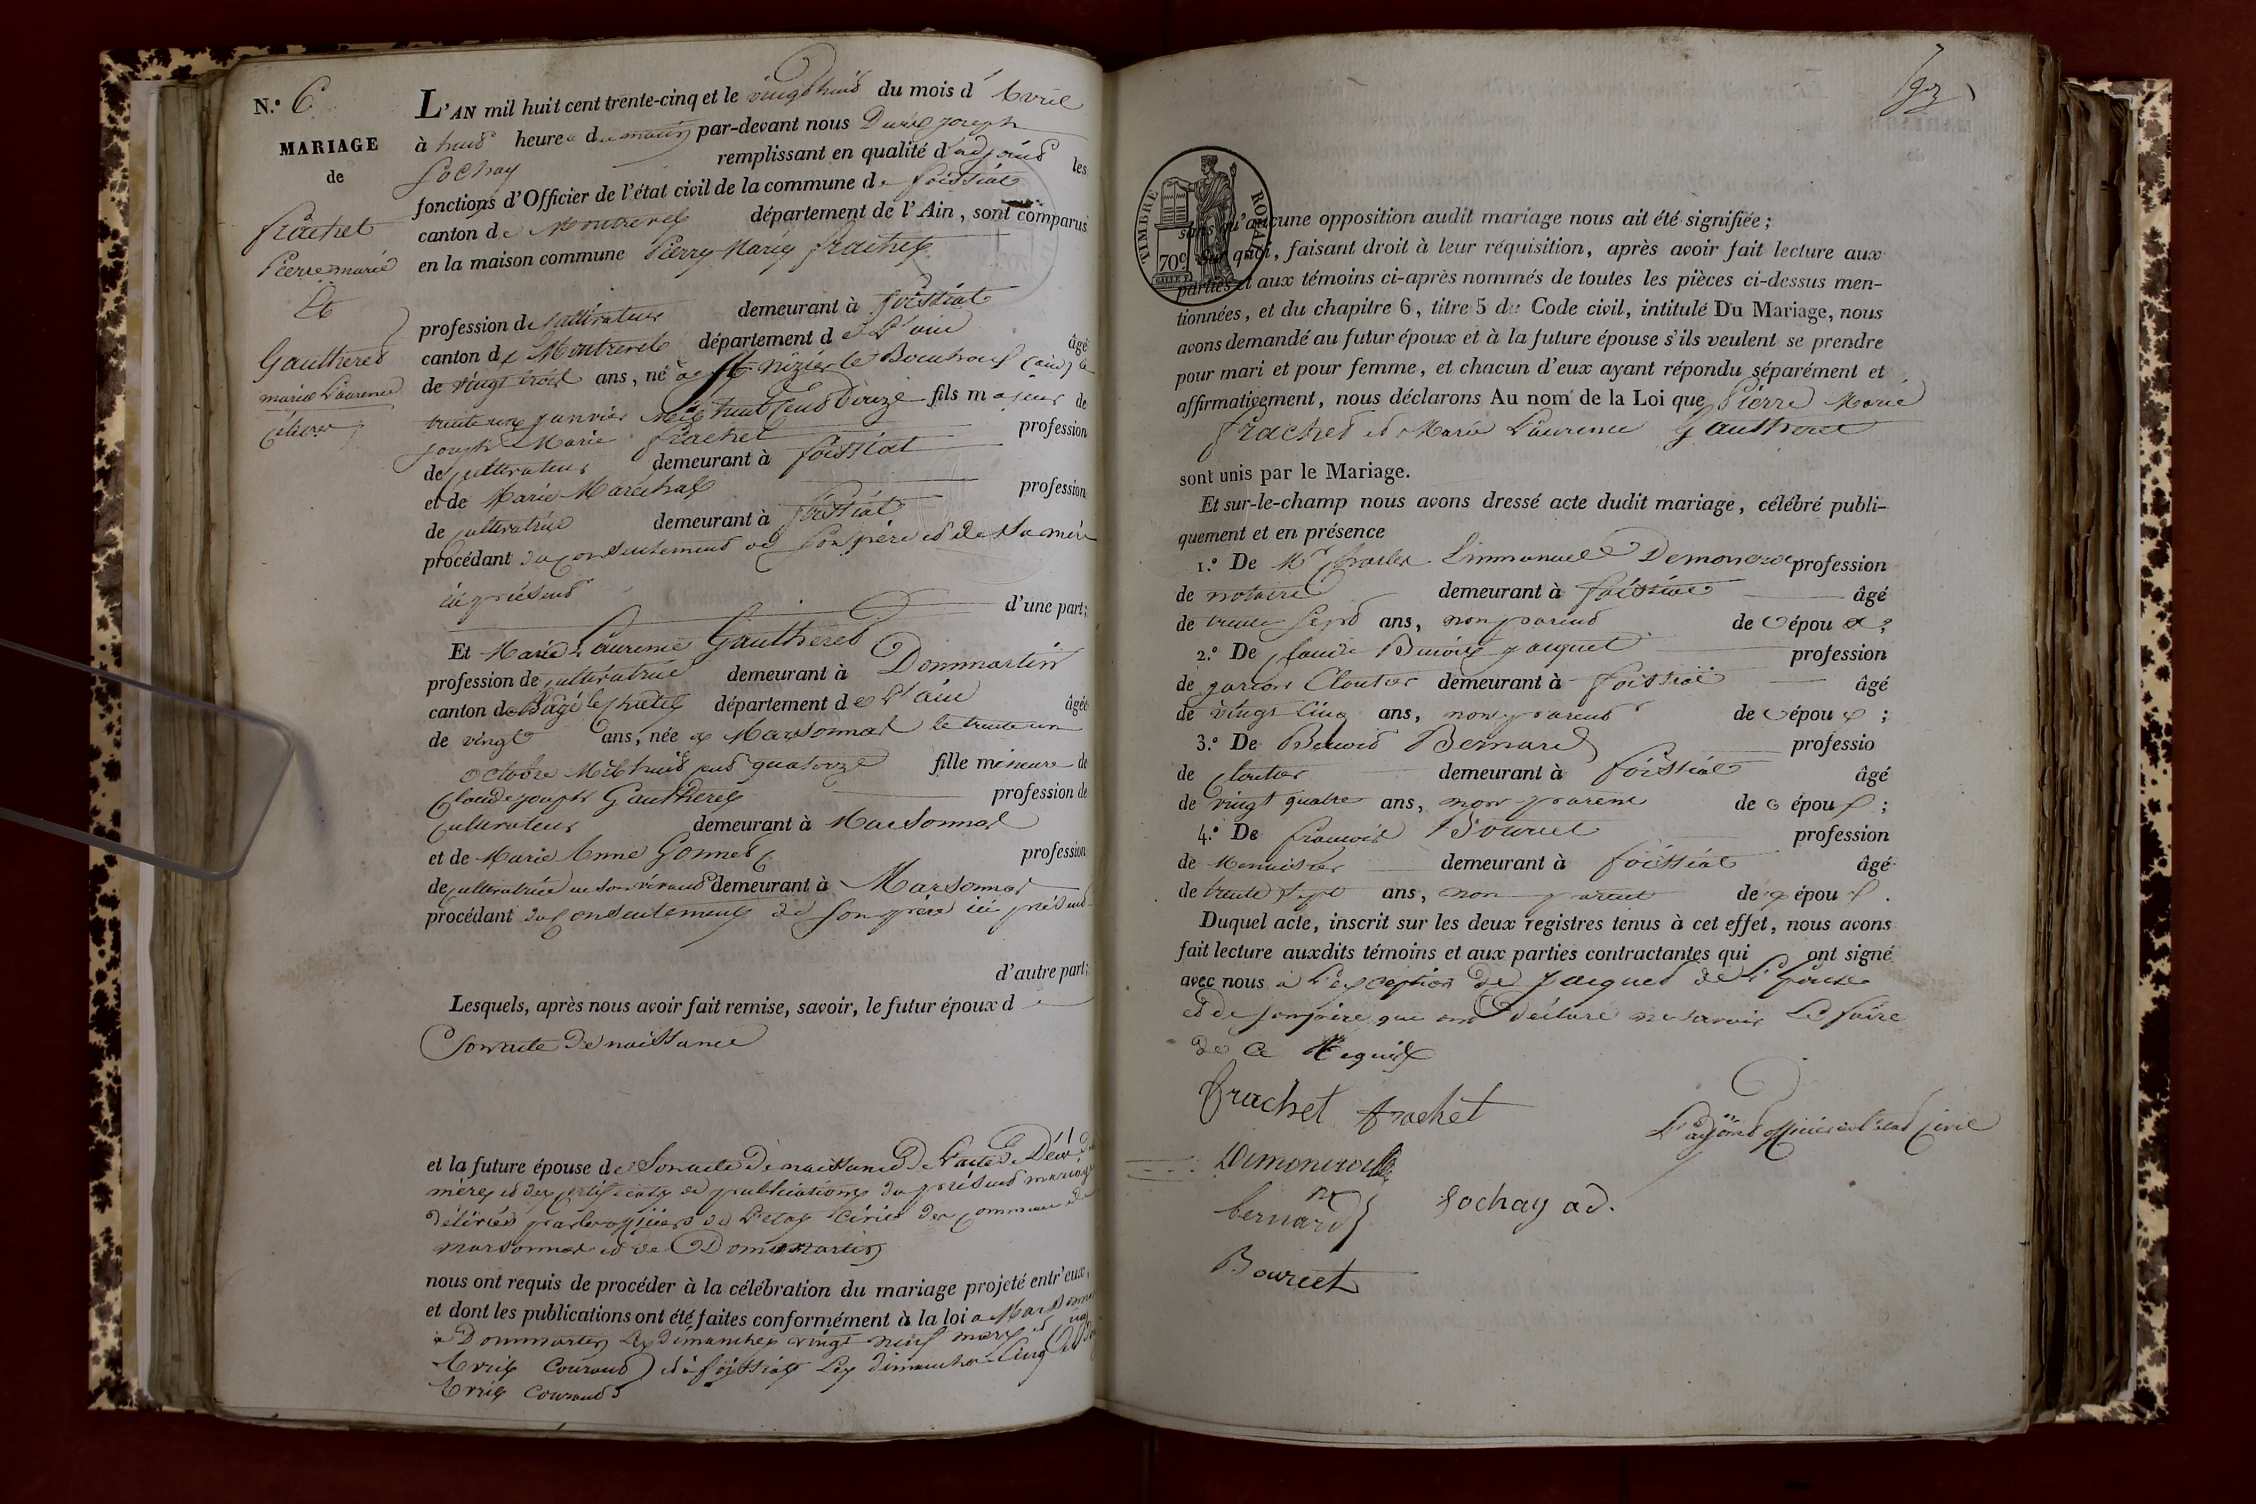 N.º 6
MARIAGE
de
frachet
Pierre marie
Et
Gautheret
marie Laurence
L'AN mil huit cent trente-cinq et le vingt huit du mois d'Avril
à huit heures du matin par-devant nous joseph
Sochay remplissant en qualité d'adjoint les
fonctions d'Officier de l'état civil de la commune de foissiat
canton de Montrevel département de l'Ain, sont comparus
en la maison commune Pierre Marie frachet
profession de cultivateur demeurant à foissiat
canton de Montrevel département de L'ain âgé
de vingt trois ans, né à St nizier le Bouchoux (ain) le
trente un janvier mil huit cent douze fils majeur de
joseph Marie frachet profession
de cultivateur demeurant à foissiat
et de Marie Marechal profession
de cultivatrice demeurant à foissiat
procédant du consentement de son père et de sa mère
ici présent
d'une part;
Et Marie Laurence Gautheret
profession de cultivatrice demeurant à Dommartin
canton de Bagé le chatel département de L'ain âgée
de vingt ans, née à Marsonnas le trente un
octobre mil huit cent quatorze fille mineure de
Claude joseph Gautheret profession de
cultivateur demeurant à Marsonnas
et de Marie Anne Gonnet profession
de cultivatrice de son vivant demeurant à Marsonnas
procédant du consentement de son père ici présent
d'autre part;
Lesquels, après nous avoir fait remise, savoir, le futur époux d
son acte de naissance
et la future épouse de son acte de naissance de L'acte de Décès de
mère et des certificats de publications du présent mariage
délivrés par les officiers de L'état Civil des communes de
Marsonnas et de Dommartin
nous ont requis de procéder à la célébration du mariage projeté entr'eux,
et dont les publications ont été faites conformément à la loi à Marsonnas
à Dommartin les dimanches vingt neuf mars et
Avril Courant et à foissiat les dimanches cinq
Avril Courant
TIMBRE ROYAL
70c
sans qu'aucune opposition audit mariage nous ait été signifiée;
sur quoi, faisant droit à leur réquisition, après avoir fait lecture aux
parties et aux témoins ci-après nommés de toutes les pièces ci-dessus men-
tionnées, et du chapitre 6, titre 5 du Code civil, intitulé Du Mariage, nous
avons demandé au futur époux et à la future épouse s'ils veulent se prendre
pour mari et pour femme, et chacun d'eux ayant répondu séparément et
affirmativement, nous déclarons Au nom de la Loi que Pierre Marie
frachet et Marie Laurence Gautheret
sont unis par le Mariage.
Et sur-le-champ nous avons dressé acte dudit mariage, célébré publi-
quement et en présence
1.º De Mr Charles Emmanuel profession
de notaire demeurant à foissiat âgé
de trente sept ans, non parent de époux;
2.º De Benoit jacquet profession
de garçon Cloutier demeurant à foissiat âgé
de vingt cinq ans, non parent de époux;
3.º De Benoit Bernard professio
de cloutier demeurant à foissiat âgé
de vingt quatre ans, non parent de époux;
4.º De françois Bourcet profession
de Menuisier demeurant à foissiat âgé
de trente sept ans, non parent de époux.
Duquel acte, inscrit sur les deux registres tenus à cet effet, nous avons
fait lecture auxdits témoins et aux parties contractantes qui ont signé
avec nous à L'exception de jacquet de L'épouse
et de son père qui ont déclaré ne savoir Le faire
de ce Requis
frachet frachet
L'adjoint officier de l'état Civil
bernard
Sochay ad.
Bourcet